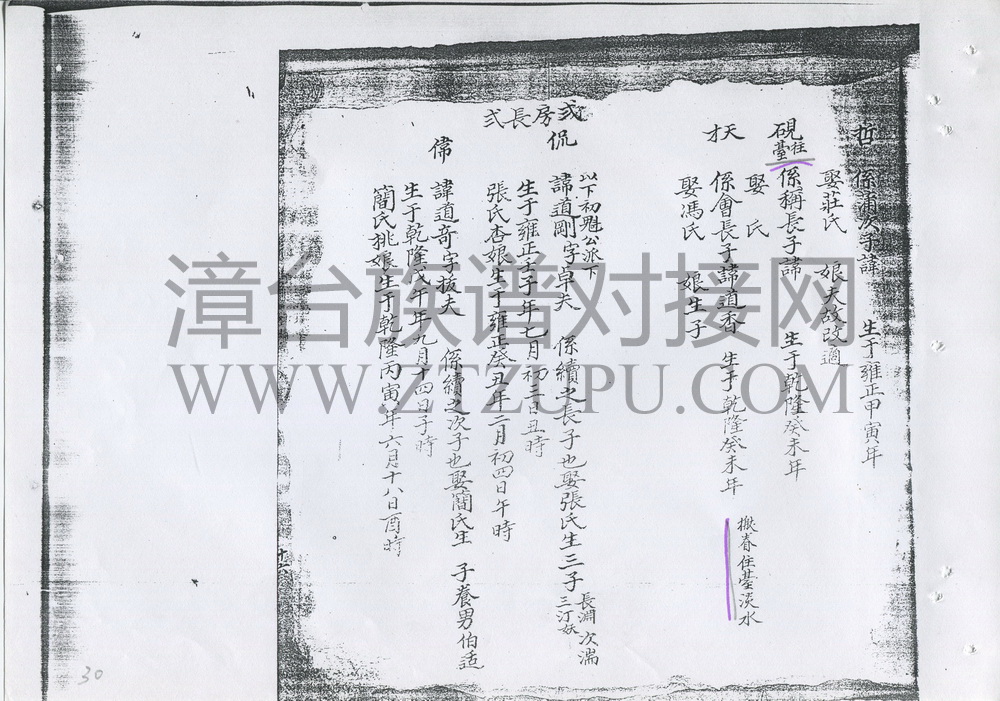 哲 係浦次子諱 生于雍正甲寅年
娶莊氏 娘夫故改適
硯 往臺 係稱長子諱 生于乾隆癸未年
娶 氏
天 係會長子諱道香 生于乾隆癸未年 搬眷住臺淡水
才 娶馮氏 娘生子
弍房長弍
以下初魁公派下
侃 諱道剛字卓夫 係續之長子也娶張氏生三子 長淵 次湍 三汀妖
生于雍正壬子年七月初三日丑時
張氏杏娘生于雍正癸丑年二月初四日午時
偉 諱道奇字拔夫 係續之次子也娶簡氏生 子養男伯适
生于乾隆戊午年九月十四日子時
簡氏挑娘生于乾隆丙寅年六月十八日酉時
十六
30
漳台族谱对接网
WWW.ZTZUPU.COM